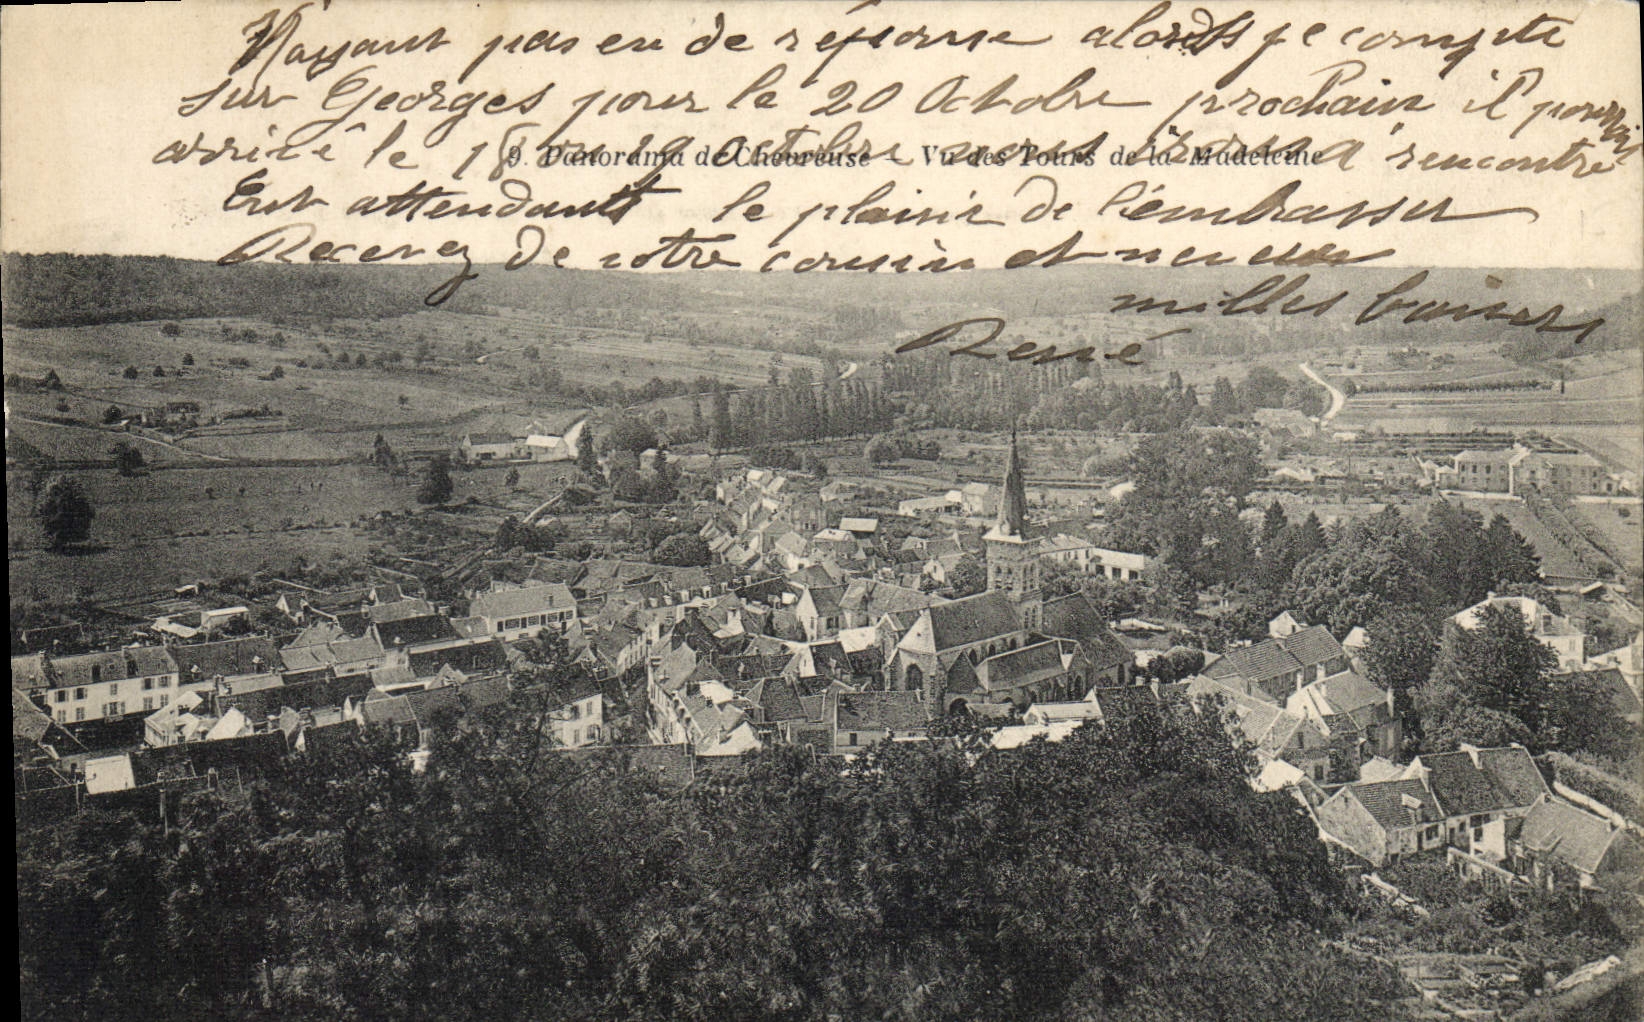 N'ayant pas eu de réponse alords je compte
sur Georges pour le 20 Octobre prochain il pourrait
arrivé le 18 ou 19 octobre nous irons a sa rencontre
9. Panorama de Chevreuse — Vu des Tours de la Madeleine
Ent attendant le plaisir de l'embrasser
Recevez de votre cousin et neveu
milles baisers
René